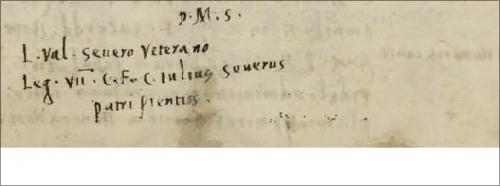 D. M. S.
L. Val. Severo Veterano
Leg. VII. C. F. C. Iulius Severus
patri pientiss.